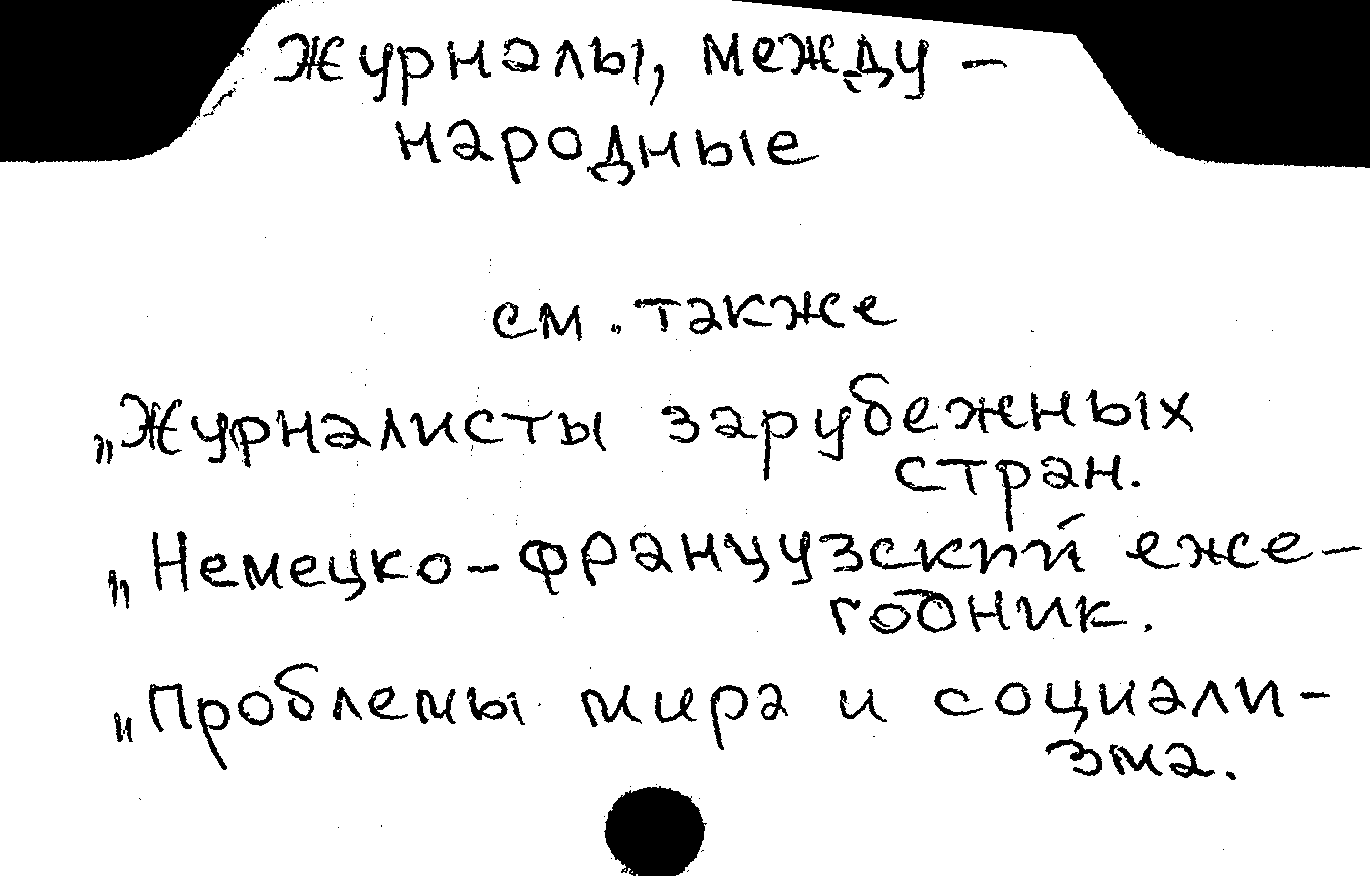 Журналы, между-
народные
см. также
„Журналисты зарубежных
стран.
„Немецко-французский еже-
годник.
„Проблемы мира и социали-
зма.